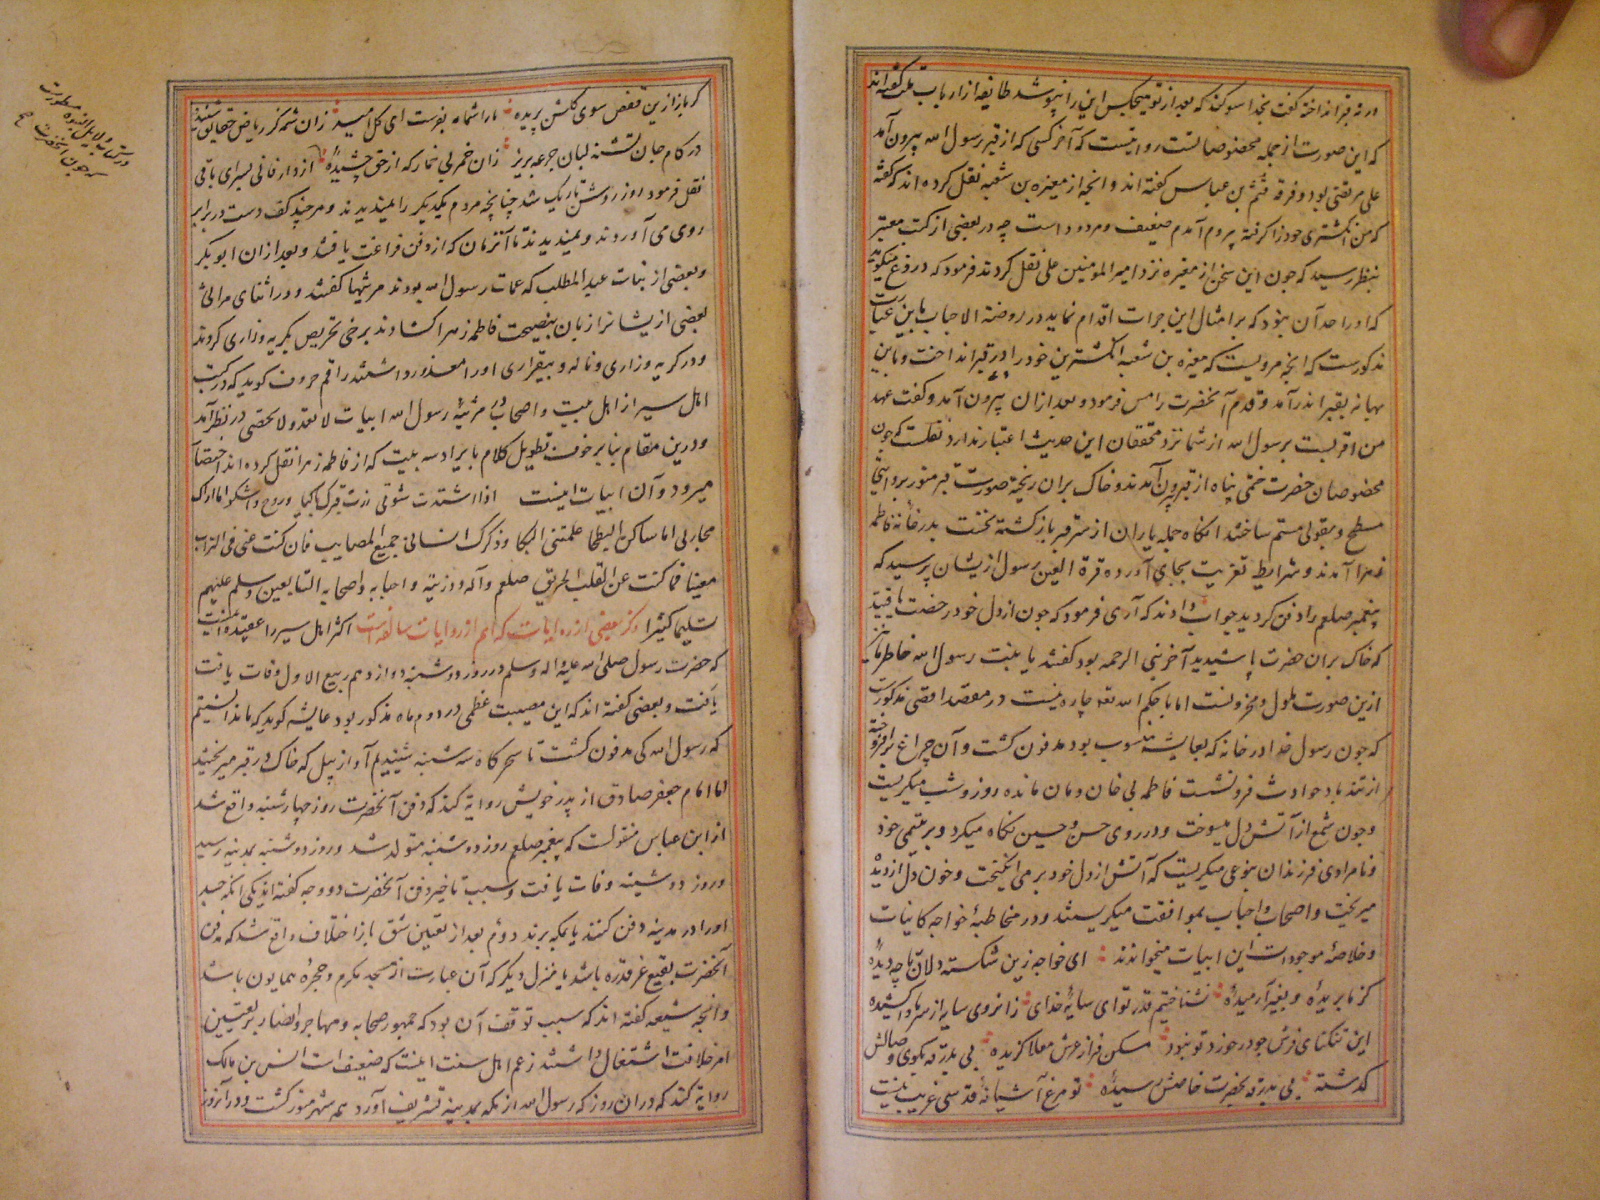 در قبر انداخته گفت بخدا سوگند که بعد از تو هیچکس این را نپوشد طایفه از ارباب گفته اند
که این صورت از جمله محضوصا تست روایتست که آخر کسی که از قبر رسول الله بیرون آمد
علی مرتضی بود و فرقه قثم بن عباس گفته اند و آنچه از مغیره بن شعبه نقل کرده اند که گفته
که من انکشتری خود را کرفته بیرون آمدم ضعیف و مردود است چه در بعضی از کتب معتبر
بنظر رسید که چون این سخن از مغیره نزد امیر المومنین علی نقل کردند فرمود که دروغ میکوید
که او را حد آن نبود که بر امثال این جرات اقدام نماید در روضة الاحباب باین عبارت
مذکورست که آنچه مرویست که مغیره بن شعبه انکشترین خود را در قبر انداخت و باین
بهانه بقبر اندر آمد و قدم آنحضرت را مس فرمود و بعد ازان بیرون آمد و گفت عهد
من اقربست برسول الله از شما نزد محققان این حدیث اعتبار ندارد نقلست که چون
مخصوصان حضرت ختمی پناه از قبر بیرون آمدند و خاک بران ریخته صورت قبر منور بر
مسطح و بقولی مسنم ساختند آنکاه جمله یاران از سر قبر بازکشته نخست بدر خانه فاطمه
زهرا آمدند و شرایط تعزیت بجای آورده قرة العین رسول از یشان پرسید که
پیغمبر صلعم را دفن کردید جواب دادند که آری فرمود که چون از دل خود رخصت یافتید
که خاک بران حضرت پاشیدید آخر نبی الرحمه بود گفتند یا بنت رسول الله خاطر ما نیز
ازین صورت ملول و محزونست اما با حکم الله تعه چاره نیست در مقصد اقصی مذکورست
که چون رسول خدا در خانه که بعایشه منسوب بود مدفون گشت و آن چراغ برافروخته
از تند باد حوادث فرو نشست فاطمه بی خان و مان مانده روز و شب میکریست
و چون شمع از آتش دل میسوخت و در روی حسن و حسین نکاه میکرد و بر یتیمی خود
و نامرادی فرزندان بنوعی میکریست که آتش از دل خود بر می انکیخت و خون دل از دیده
میریخت و اصحاب و احباب بموافقت میکریستند و در مخاطبهٔ خواجه کاینات
و خلاصهٔ موجودات این ابیات میخواندند ای خواجه زین شکسته دلان تا چه دیدهٔ
کز ما بریدهٔ و بغیر آرمیدهٔ نشناختیم قدر تو ای سایهٔ خدای زانروی سایه از سر ما درکشیدهٔ
این تنکنای فرش چو در خورد تو نبود مسکن فراز عرش معلا کزیده بی بدرقه بکوی وصالش
کذشته بی بدرقه بحضرت خاصش رسیدهٔ تو مرغ آشیانهٔ قدسی غریب نیست
کر باز ازین قفص سوی کلشن پریده ما را شمامه بفرست ای کل امید زان شمه کز ریاض حقایق شنیده
در کام جان تشنه لبان جرعه بریز زان خمر بی خمار که از حق چشیده از دار فانی بسرای باقی
نقل فرمود روز روشن تاریک شد چنانچه مردم یکدیکر را نمیدیدند و هر چند کف دست در برابر
روی می آوردند نمیدیدند تا آنزمان که از دفن فراغت یافتند و بعد ازان ابوبکر
و بعضی از بنات عبد المطلب که عمات رسول الله بودند مرثیها گفتند و در اثنای مراثی
بعضی از یشانرا زبان بنصیحت فاطمه زهرا کشادند برخی تحریص بکریه و زاری کردند
و در کریه و زاری و ناله و بیقراری او را معذور داشتند راقم حروف کوید که در کتب
اهل سیر از اهل بیت و اصحاب در مرثیهٔ رسول الله ابیات لا تعد و لا تحصی در نظر آمد
و درین مقام بنا بر خوف تطویل کلام بایراد سه بیت که از فاطمه زهرا نقل کرده اند اختصار
میرود و آن ابیات اینست اذا اشتدت شوقی زرت قبرک باکیا و روح و اشکو اما اراک
مجاربی اما ساکن البطحا علمتنی البکا و ذکرک انسانی جمیع المصایب فان کنت عنی فی التراب
مغیبا فما کنت عن القلب الحریق صلعم و آله و ذریته و احبابه و اصحابه التابعین و سلم علیهم
تسلیما کثیرا ذکر بعضی از روایات که اهم از روایات سالفست اکثر اهل سیر را عقیده اینست
که حضرت رسول صلی الله علیه و اله و سلم در روز دوشنبه دوازدهم ربیع الاول وفات یافت
یافت و بعضی گفته اند که این مصیبت عظمی در دوم ماه مذکور بود عایشه کوید که ما ندانستیم
که رسول الله کی مدفون کشت تا سحرکاه سه شنبه شنیدیم آواز بیل که خاک در قبر میریختند
اما امام جعفر صادق از پدر خویش روایة کند که دفن آنحضرت روز چهارشنبه واقع شد
از ابن عباس منقولست که پیغمبر صلعم روز دوشنبه متولد شد و روز دوشنبه بمدینه رسید
و روز دوشنبه وفات یافت و سبب تاخیر دفن آنحضرت دو وجه گفته اند یکی آنکه جسد
او را در مدینه دفن کنند یا بمکه برند دوم بعد از تعیین شق باز اختلاف واقع شد که مدفن
آنحضرت بقیع غرقده باشد یا منزل دیکر که آن عبارت از مسجد مکرم و حجرهٔ همایون باشد
و آنچه شیعه گفته اند که سبب توقف آن بود که جمهور صحابه و مهاجر و انصار بر تعیین
امر خلافت اشتغال داشتند زعم اهل سنت اینست که ضعیف است انس بن مالک
روایة کند که دران روز که رسول الله از مکه بمدینه تشریف آورد همه شهر منور کشت و در آنروز